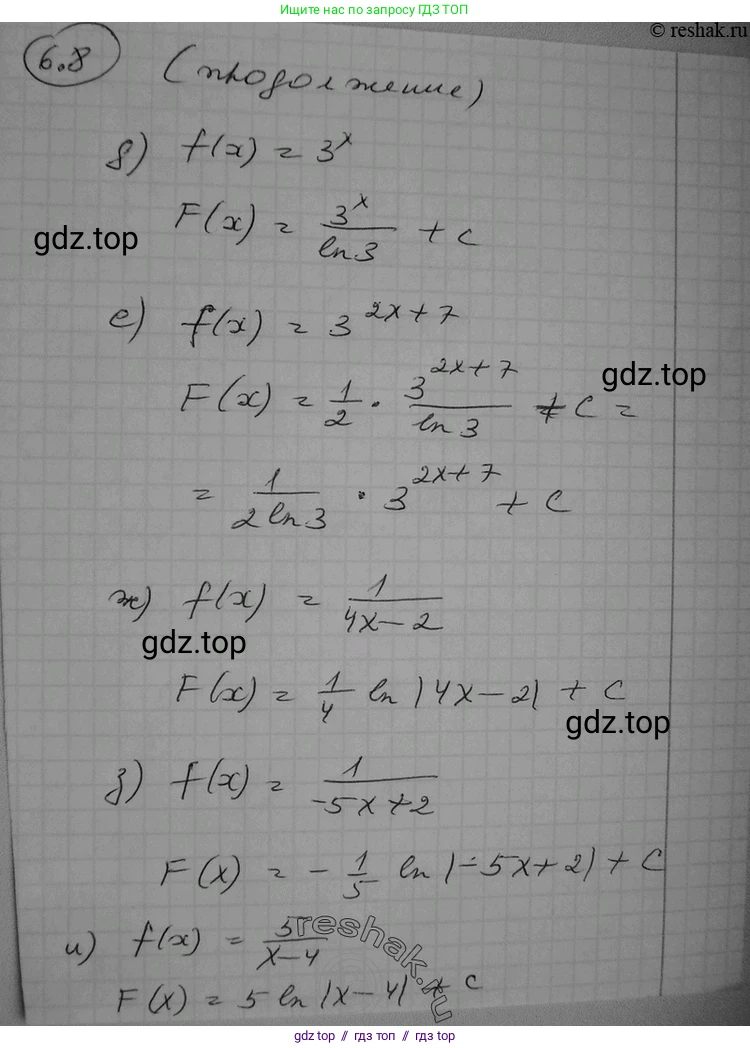 Ищите нас по запросу ГДЗ ТОП
© reshak.ru
6.8 (продолжение)
д) f(x) = 3^x
F(x) = 3^x / ln 3 + C
gdz.top
е) f(x) = 3^(2x+7)
F(x) = 1/2 · 3^(2x+7) / ln 3 + C =
gdz.top
= 1 / (2 ln 3) · 3^(2x+7) + C
ж) f(x) = 1 / (4x - 2)
gdz.top
F(x) = 1/4 ln |4x - 2| + C
gdz.top
з) f(x) = 1 / (-5x + 2)
F(x) = - 1/5 ln |-5x + 2| + C
и) f(x) = 5 / (x - 4)
reshak.ru
F(x) = 5 ln |x - 4| + C
gdz top // гдз топ // gdz.top // гдз top